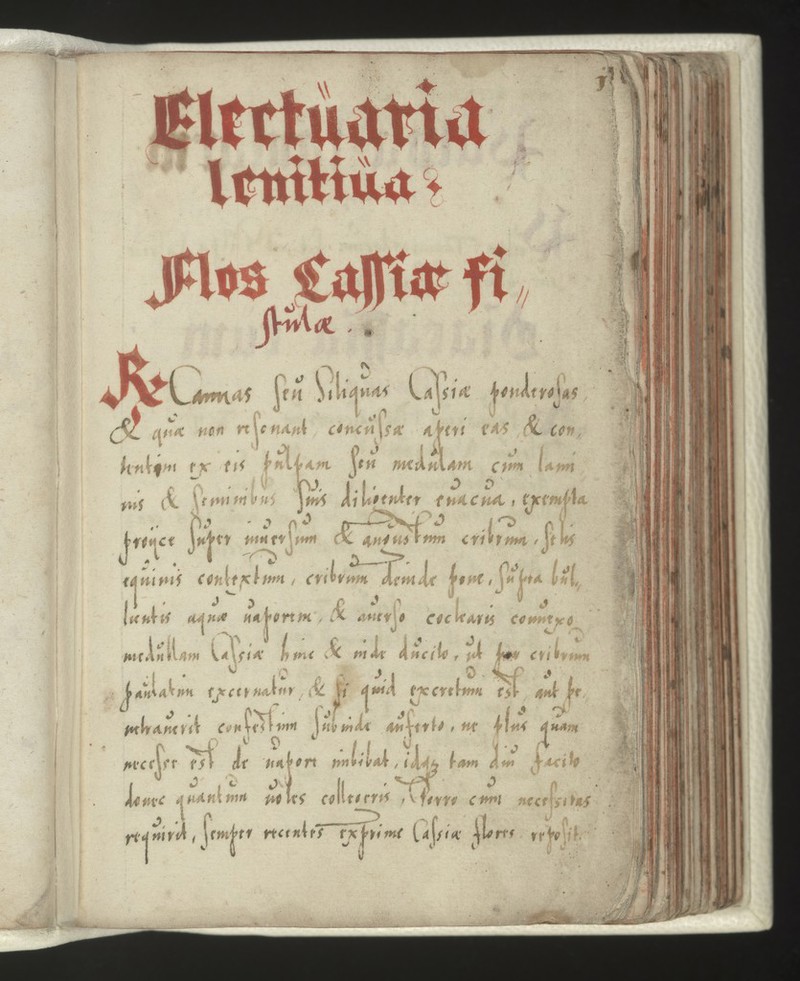 1
Electüaria
lenitiüa:
Flos Cassiæ fi„
stulæ.
℞ Cannas seu Siliquas Cassiæ ponderosas,
& quæ non resonant concussæ aperi eas, & con„
tentam ex eis pulpam seu medulam cum lami
nis & seminibus suis diligenter euacua, exempta
proijce super inuersum & angustum cribrum, setis
equinis contextum, cribrum deinde pone, supra bul„
lientis aquæ uaporem, & auerso coclearis conuexo
medullam Cassiæ hinc & inde ducito, ut per cribrum
paulatim excernatur, & si quid excretum est, aut pe„
netrauerit confestim subinde auferto, ne plus quam
necesse est de uapore imbibat, idq; tam diu facito
donec quantum uoles collegeris, Porro cum necessitas
requirit, semper recentes exprime Cassiæ flores reposit.